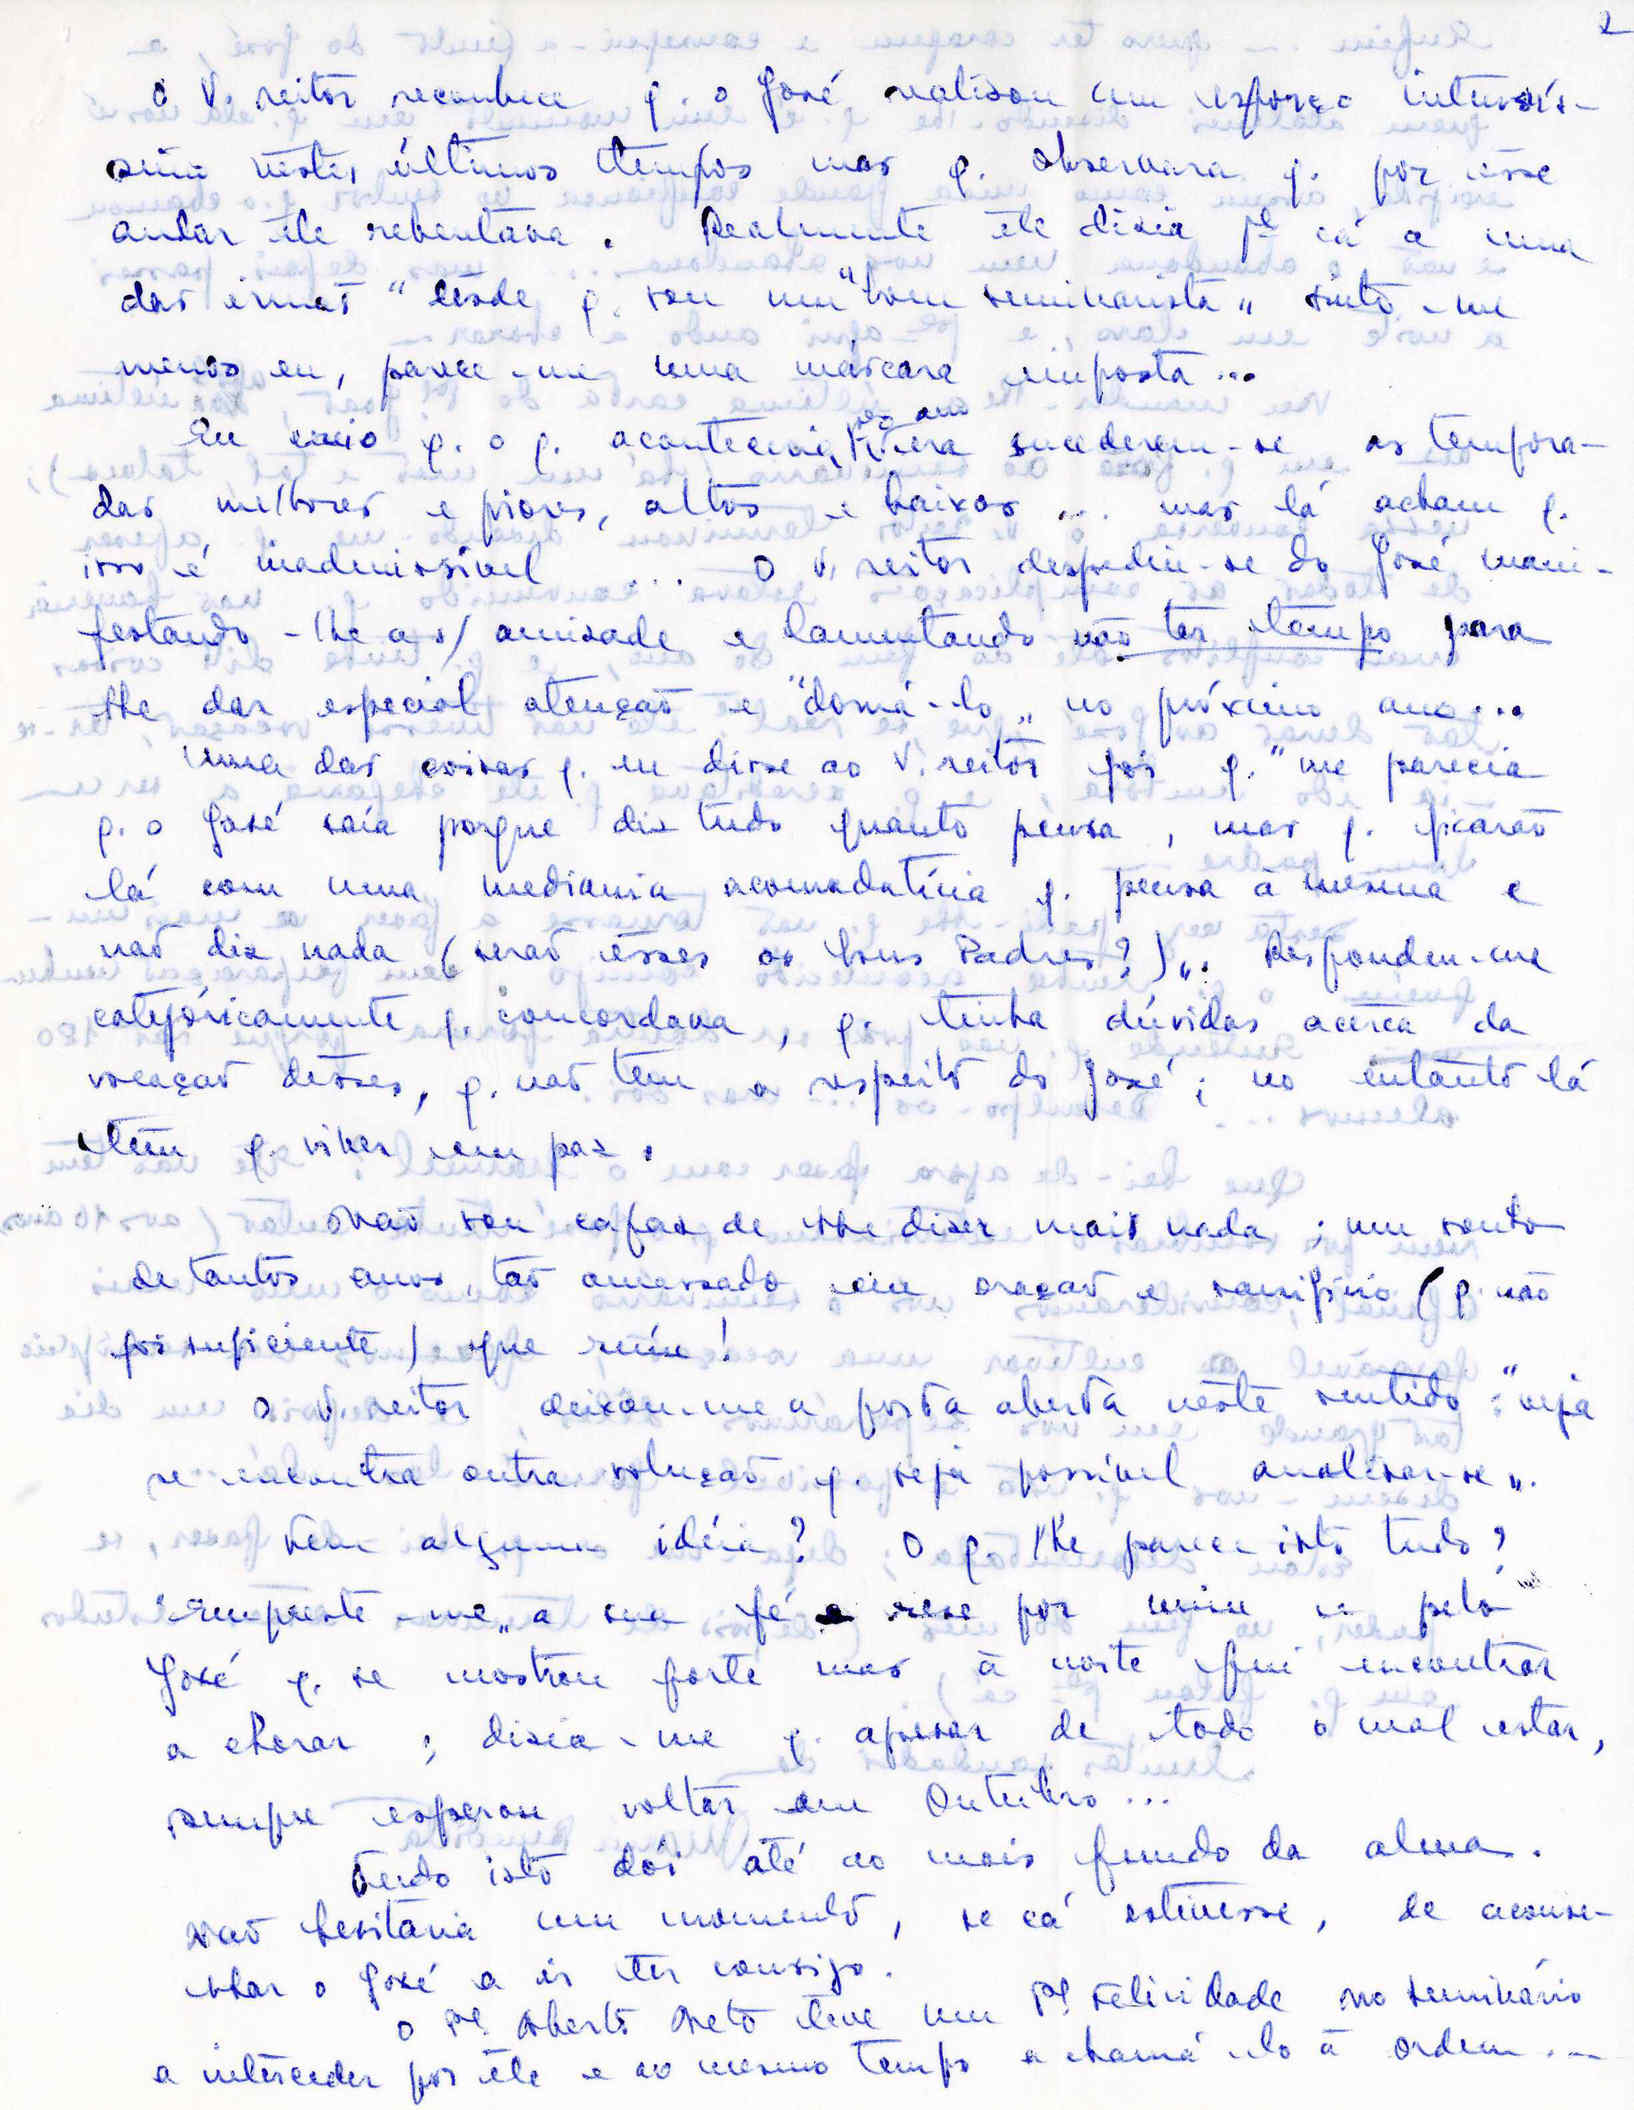 2
O V. reitor reconhece q. o José realisou um esforço intensís-
simo nêstes últimos tempos mas q. observara q. por êsse
andar êle rebentava. Realmente êle dizia pª cá a uma
das irmãs "desde q. sou um "bom seminarista" sinto-me
menos eu, parece-me uma máscara imposta...
Eu creio q. o q. acontecia era sucederem-se as tempora-
das melhores e piores, altos e baixos... mas lá acham q.
isso é inadmissível ... O V. reitor despediu-se do José mani-
festando-lhe a s/ amisade e lamentando não ter tempo para
lhe dar especial atenção e "domá-lo" no próximo ano...
Uma das coisas q. eu disse ao V. reitor foi q. "me parecia
q. o José saía porque diz tudo quanto pensa, mas q. ficarão
lá com uma mediania acomodatícia q. pensa o mesmo e
não diz nada (serão êsses os bons Padres?)". Respondeu-me
categóricamente q. concordava, q. tinha dúvidas acêrca da
vocação dêsses, q. não tem a respeito do José; no entanto lá
têm q. viver em paz.
Não sou capaz de lhe dizer mais nada; um sonho
de tantos anos, tão amassado em oração e sacrifício (q. não
foi suficiente) que ruíu!
O V. reitor deixou-me a porta aberta nêste sentido: "veja
se encontra outra solução q. seja possível analisar-se".
Tem alguma idéia? O q. lhe parece isto tudo?
"Empreste-me" a sua fé e reze por mim e pelo
José q. se mostrou forte mas à noite fui encontrar
a chorar; dizia-me q. apesar de todo o mal estar,
sempre esperou voltar em Outubro...
Tudo isto dói até ao mais fundo da alma.
Não hesitaria um momento, se cá estivesse, de aconse-
lhar o José a ir ter consigo.
O Pe Alberto Neto teve um Pe Felicidade no seminário
a interceder por êle e ao mesmo tempo a chamá-lo à ordem...